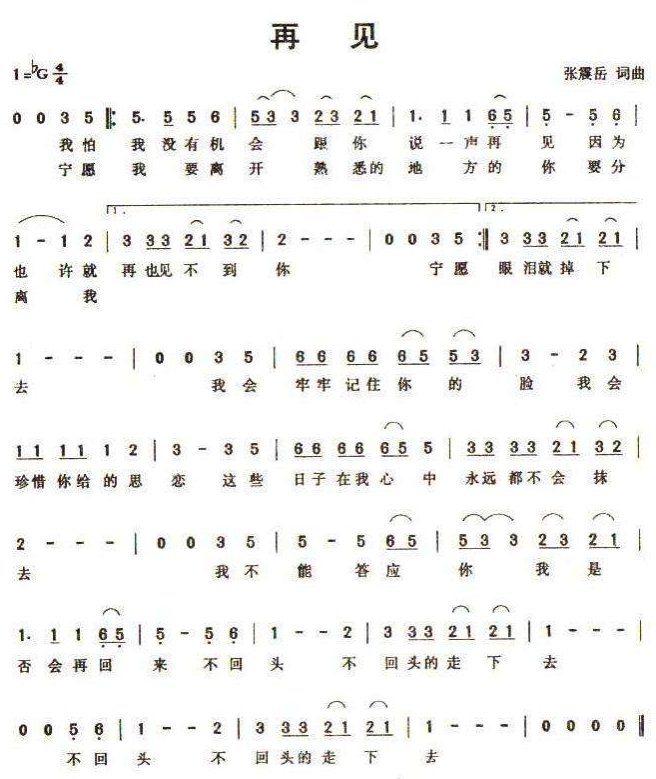 再 见
1=♭G 4/4
张震岳 词曲
0 0 3 5 ‖: 5· 5 5 6 | 5 3 3 2 3 2 1 | 1· 1 1 6 5 | 5 - 5 6 |
我 怕 我 没 有 机 会 跟 你 说 一 声 再 见 因 为
宁 愿 我 要 离 开 熟 悉 的 地 方 的 你 要 分
1.
2.
1 - 1 2 | 3 3 3 2 1 3 2 | 2 - - - | 0 0 3 5 :‖ 3 3 3 2 1 2 1 |
也 许 就 再 也 见 不 到 你 宁 愿 眼 泪 就 掉 下
离 我
1 - - - | 0 0 3 5 | 6 6 6 6 6 5 5 3 | 3 - 2 3 |
去 我 会 牢 牢 记 住 你 的 脸 我 会
1 1 1 1 1 2 | 3 - 3 5 | 6 6 6 6 6 5 5 | 3 3 3 3 2 1 3 2 |
珍 惜 你 给 的 思 恋 这 些 日 子 在 我 心 中 永 远 都 不 会 抹
2 - - - | 0 0 3 5 | 5 - 5 6 5 | 5 3 3 2 3 2 1 |
去 我 不 能 答 应 你 我 是
1· 1 1 6 5 | 5 - 5 6 | 1 - - 2 | 3 3 3 2 1 2 1 | 1 - - - |
否 会 再 回 来 不 回 头 不 回 头 的 走 下 去
0 0 5 6 | 1 - - 2 | 3 3 3 2 1 2 1 | 1 - - - | 0 0 0 0 ‖
不 回 头 不 回 头 的 走 下 去